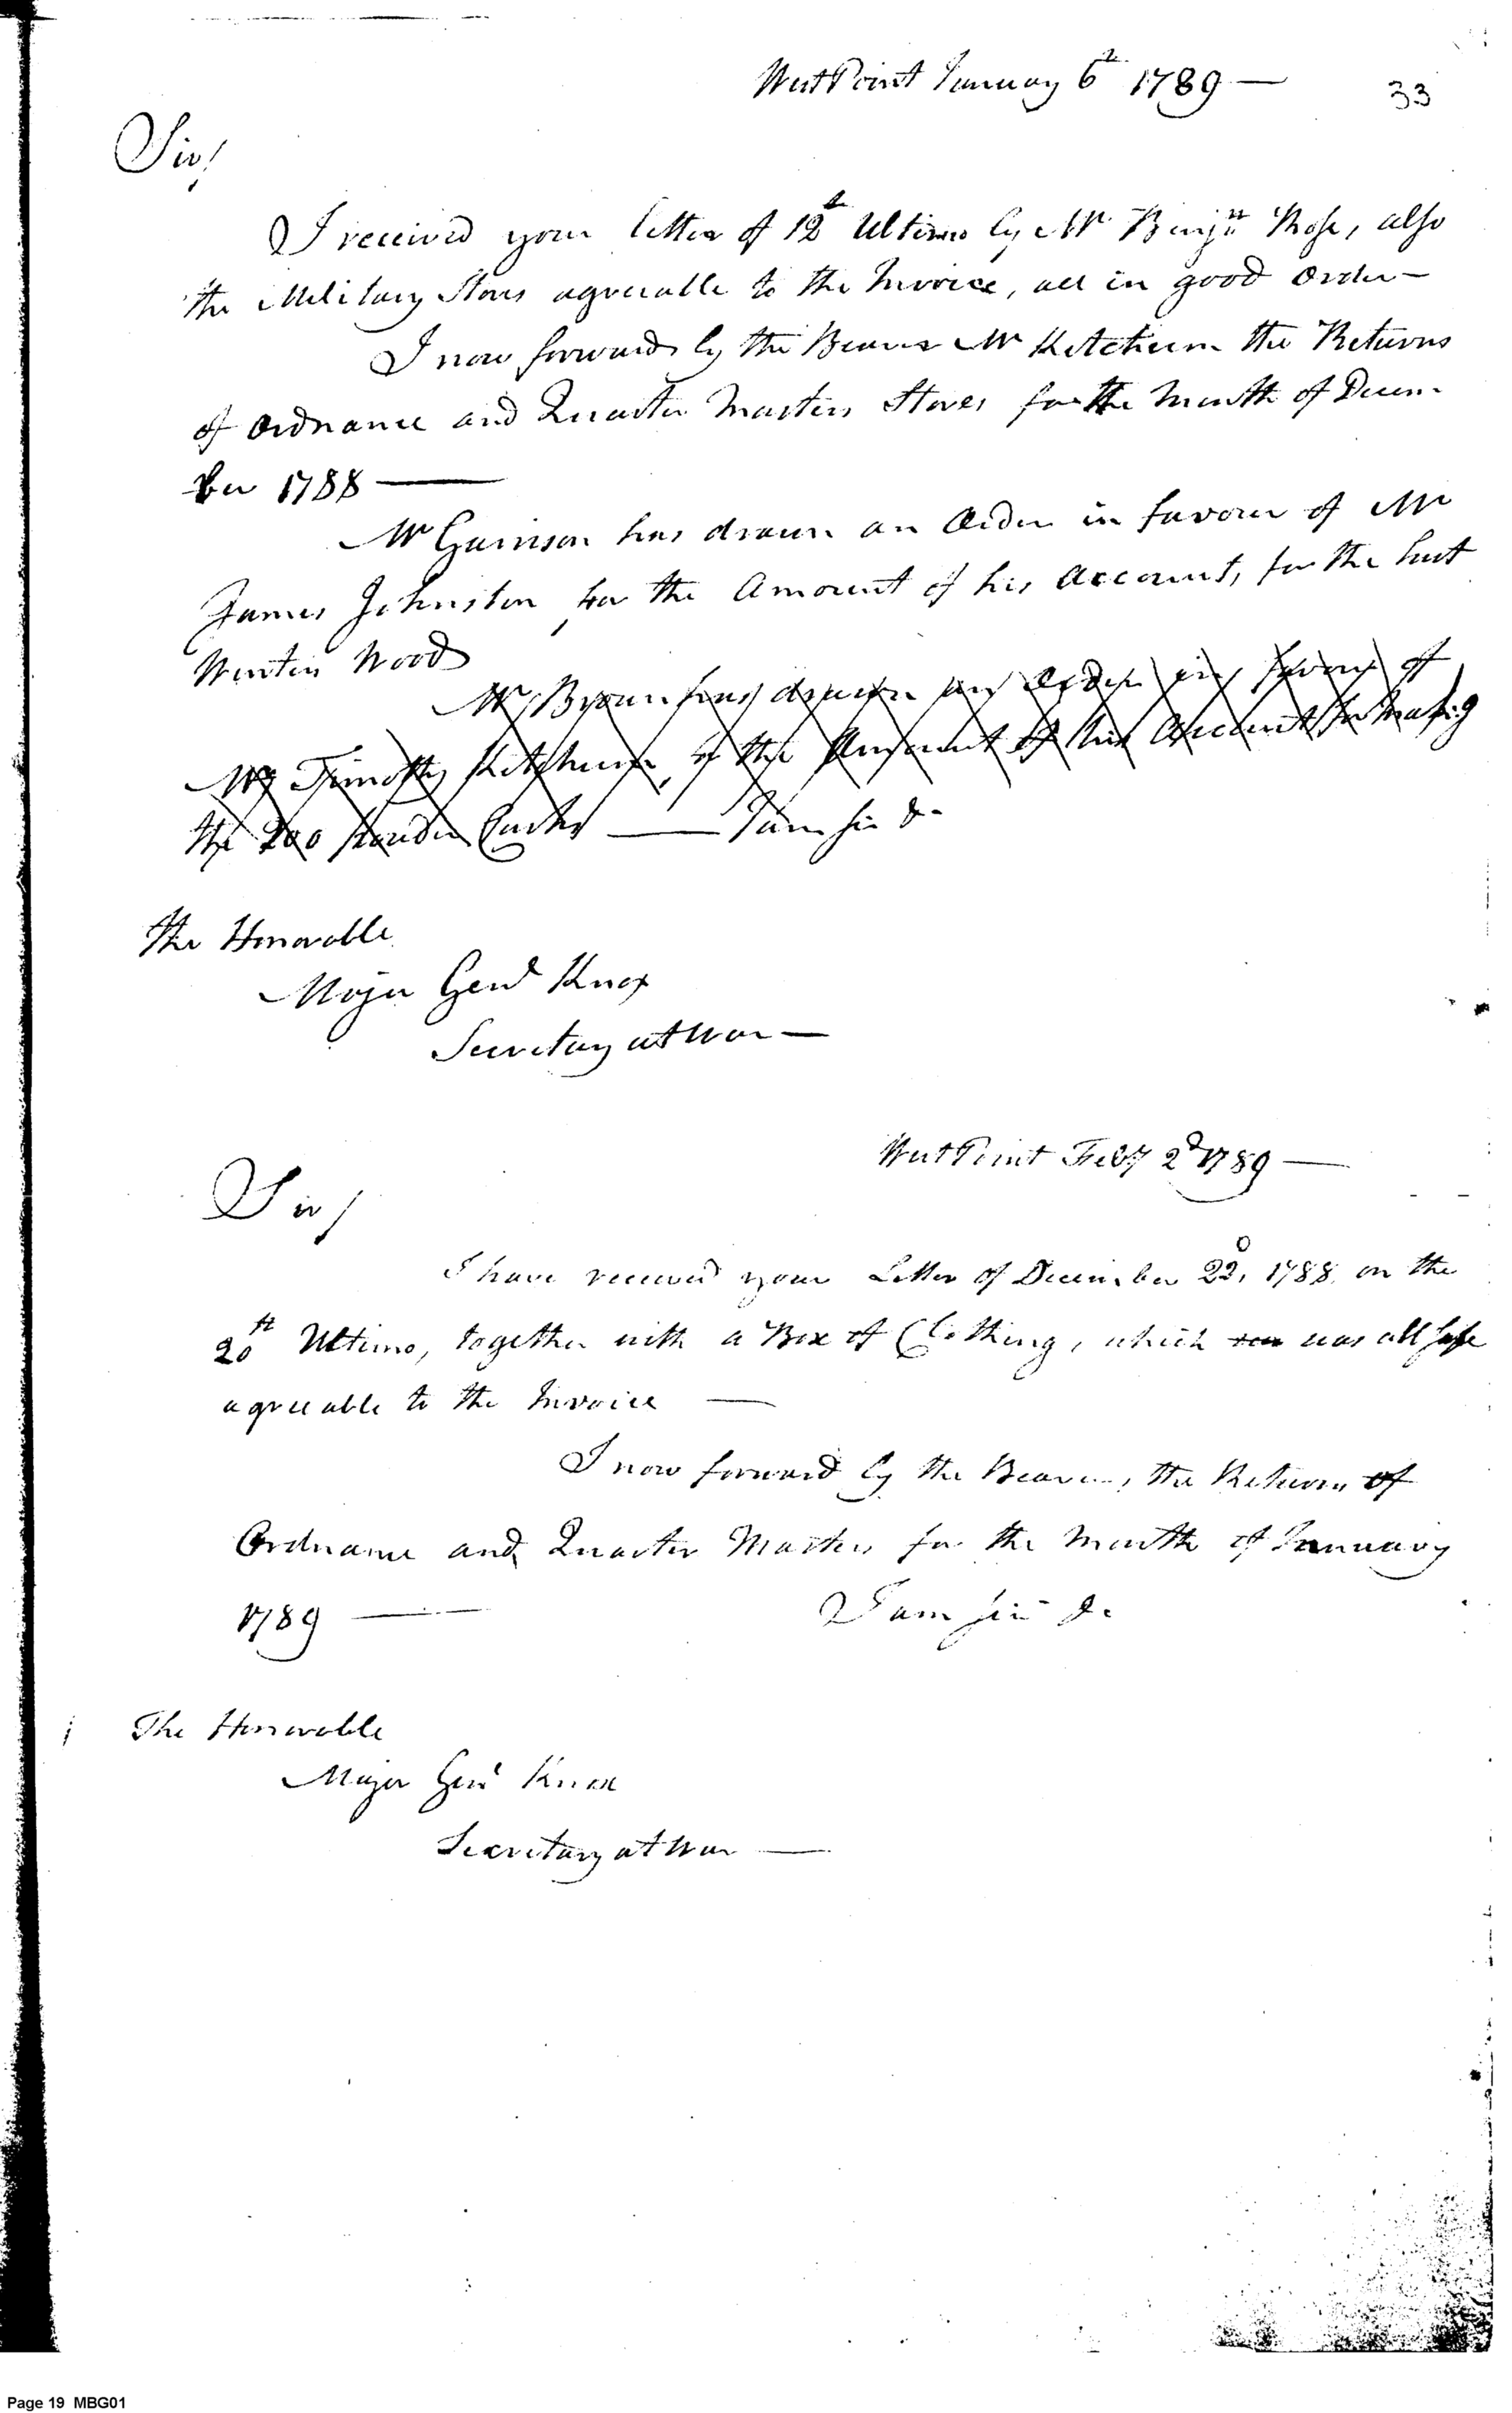 West Point January 6th 1789 —
33
Sir/
I received your letter of 12th Ultimo by Mr Benjn Rose, also
the Military Stores agreeable to the Invoice, all in good Order —
I now forward by the Bearer Mr Ketchum the Returns
of Ordnance and Quarter Masters Stores for the Month of Decem-
ber 1788 —
Mr Garrison has drawn an Order in favour of Mr
James Johnston for the Amount of his Account, for the last
Winter Wood
Mr Bryan has drawn an Order in favour of
Mr Timothy Ketchum, of the Amount of his Account for Making
the 200 Powder Casks — I am Sir &c
The Honorable
Major Genl Knox
Secretary at War —
West Point Feby 2d 1789 —
Sir/
I have received your Letter of December 22d, 1788 on the
20th Ultimo, together with a Box of Clothing, which was all safe
agreeable to the Invoice —
I now forward by the Bearer, the Return of
Ordnance and Quarter Masters for the Month of January
1789 — I am Sir &c
The Honorable
Major Genl Knox
Secretary at War —
Page 19 MBG01